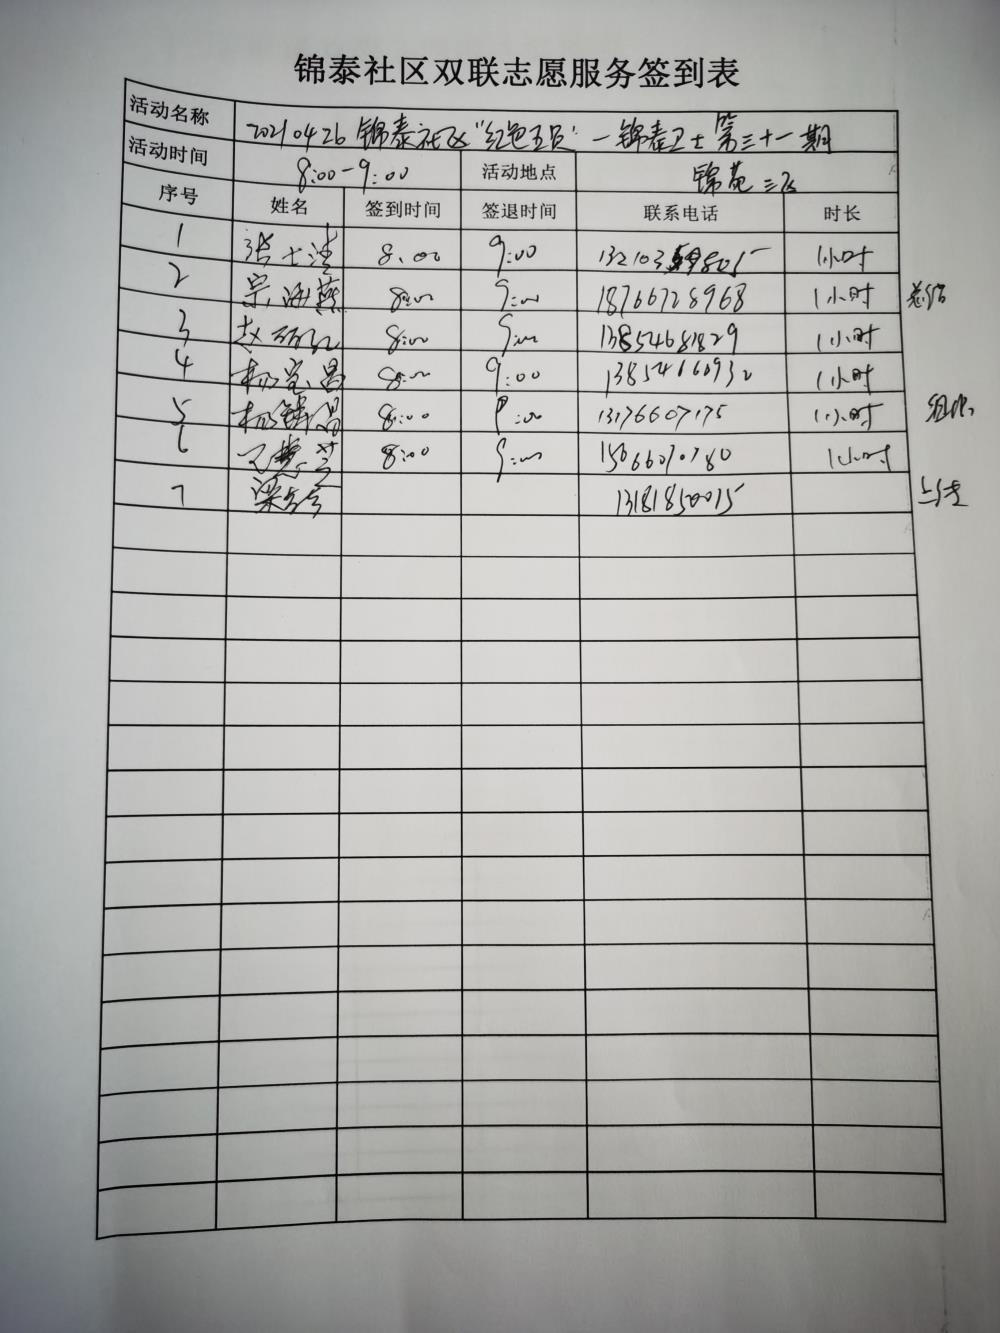 锦泰社区双联志愿服务签到表
活动名称 20210426 锦泰社区"红色五员"—锦泰卫士第三十一期
活动时间 8:00-9:00 活动地点 锦苑三区
序号 姓名 签到时间 签退时间 联系电话 时长
1 张 8:00 9:00 132103 8015 1小时
2 宗海燕 8:00 9:00 18766728968 1小时 总结
3 赵丽红 8:00 9:00 13854681829 1小时
4 杨宝昌 8:00 9:00 13854660932 1小时
5 杨锦昌 8:00 9:00 13176607175 1小时 组织
6 8:00 9:00 15066070780 1小时
7 梁 13181850015 上传